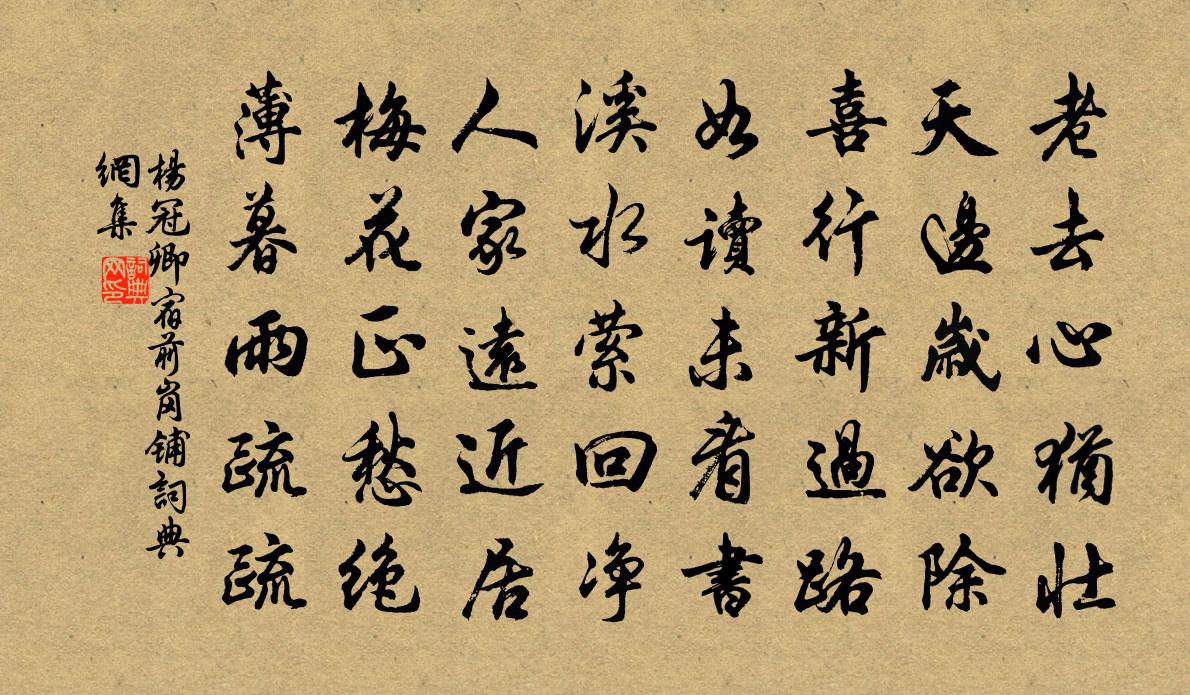 老去心猶壯
天邊歲欲除
喜行新過路
如讀未看書
溪水縈回淨
人家遠近居
梅花正愁絕
薄暮雨疏疏
楊冠卿宿前岡鋪詞典
網集
詞典
网印